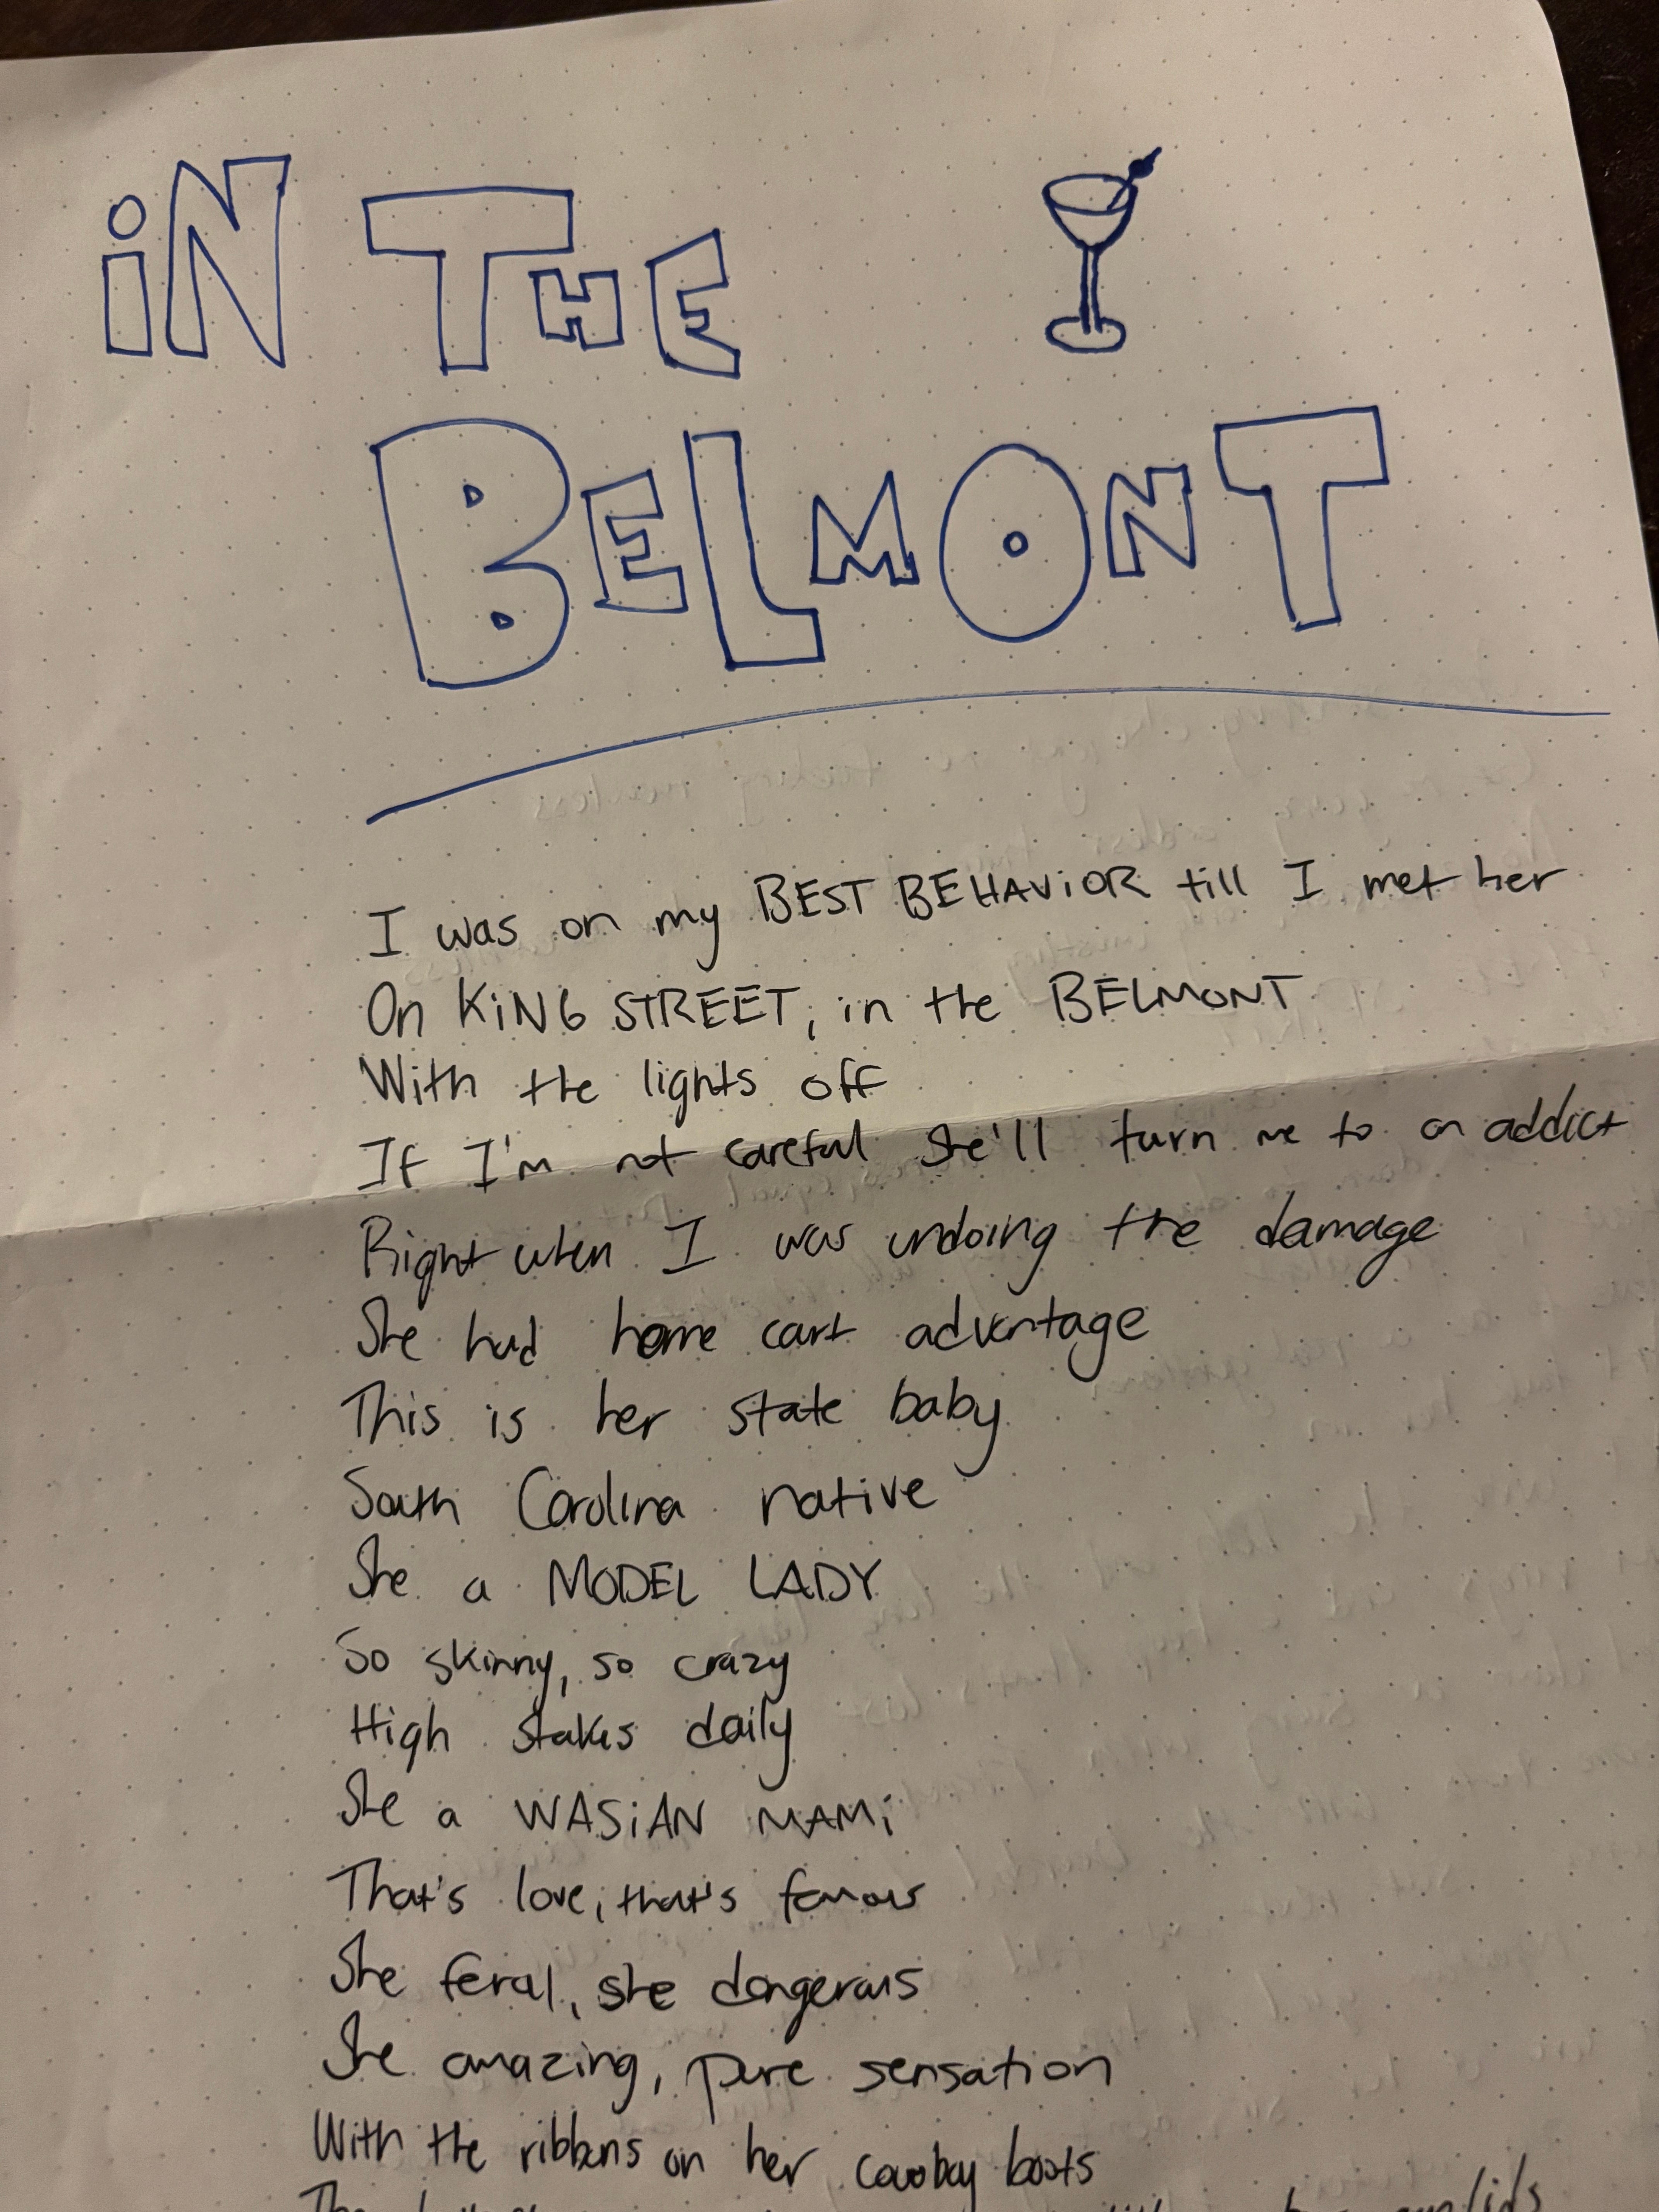 iN THE
BELMONT
I was on my BEST BEHAViOR till I met her
On KiNG STREET, in the BELMONT
With the lights off
If I'm not careful she'll turn me to an addict
Right when I was undoing the damage
She had home court advantage
This is her state baby
South Carolina native
She a MODEL LADY
So skinny, so crazy
High stakes daily
She a WASiAN MAMi
That's love, that's famous
She feral, she dangerous
She amazing, pure sensation
With the ribbons on her cowboy boots